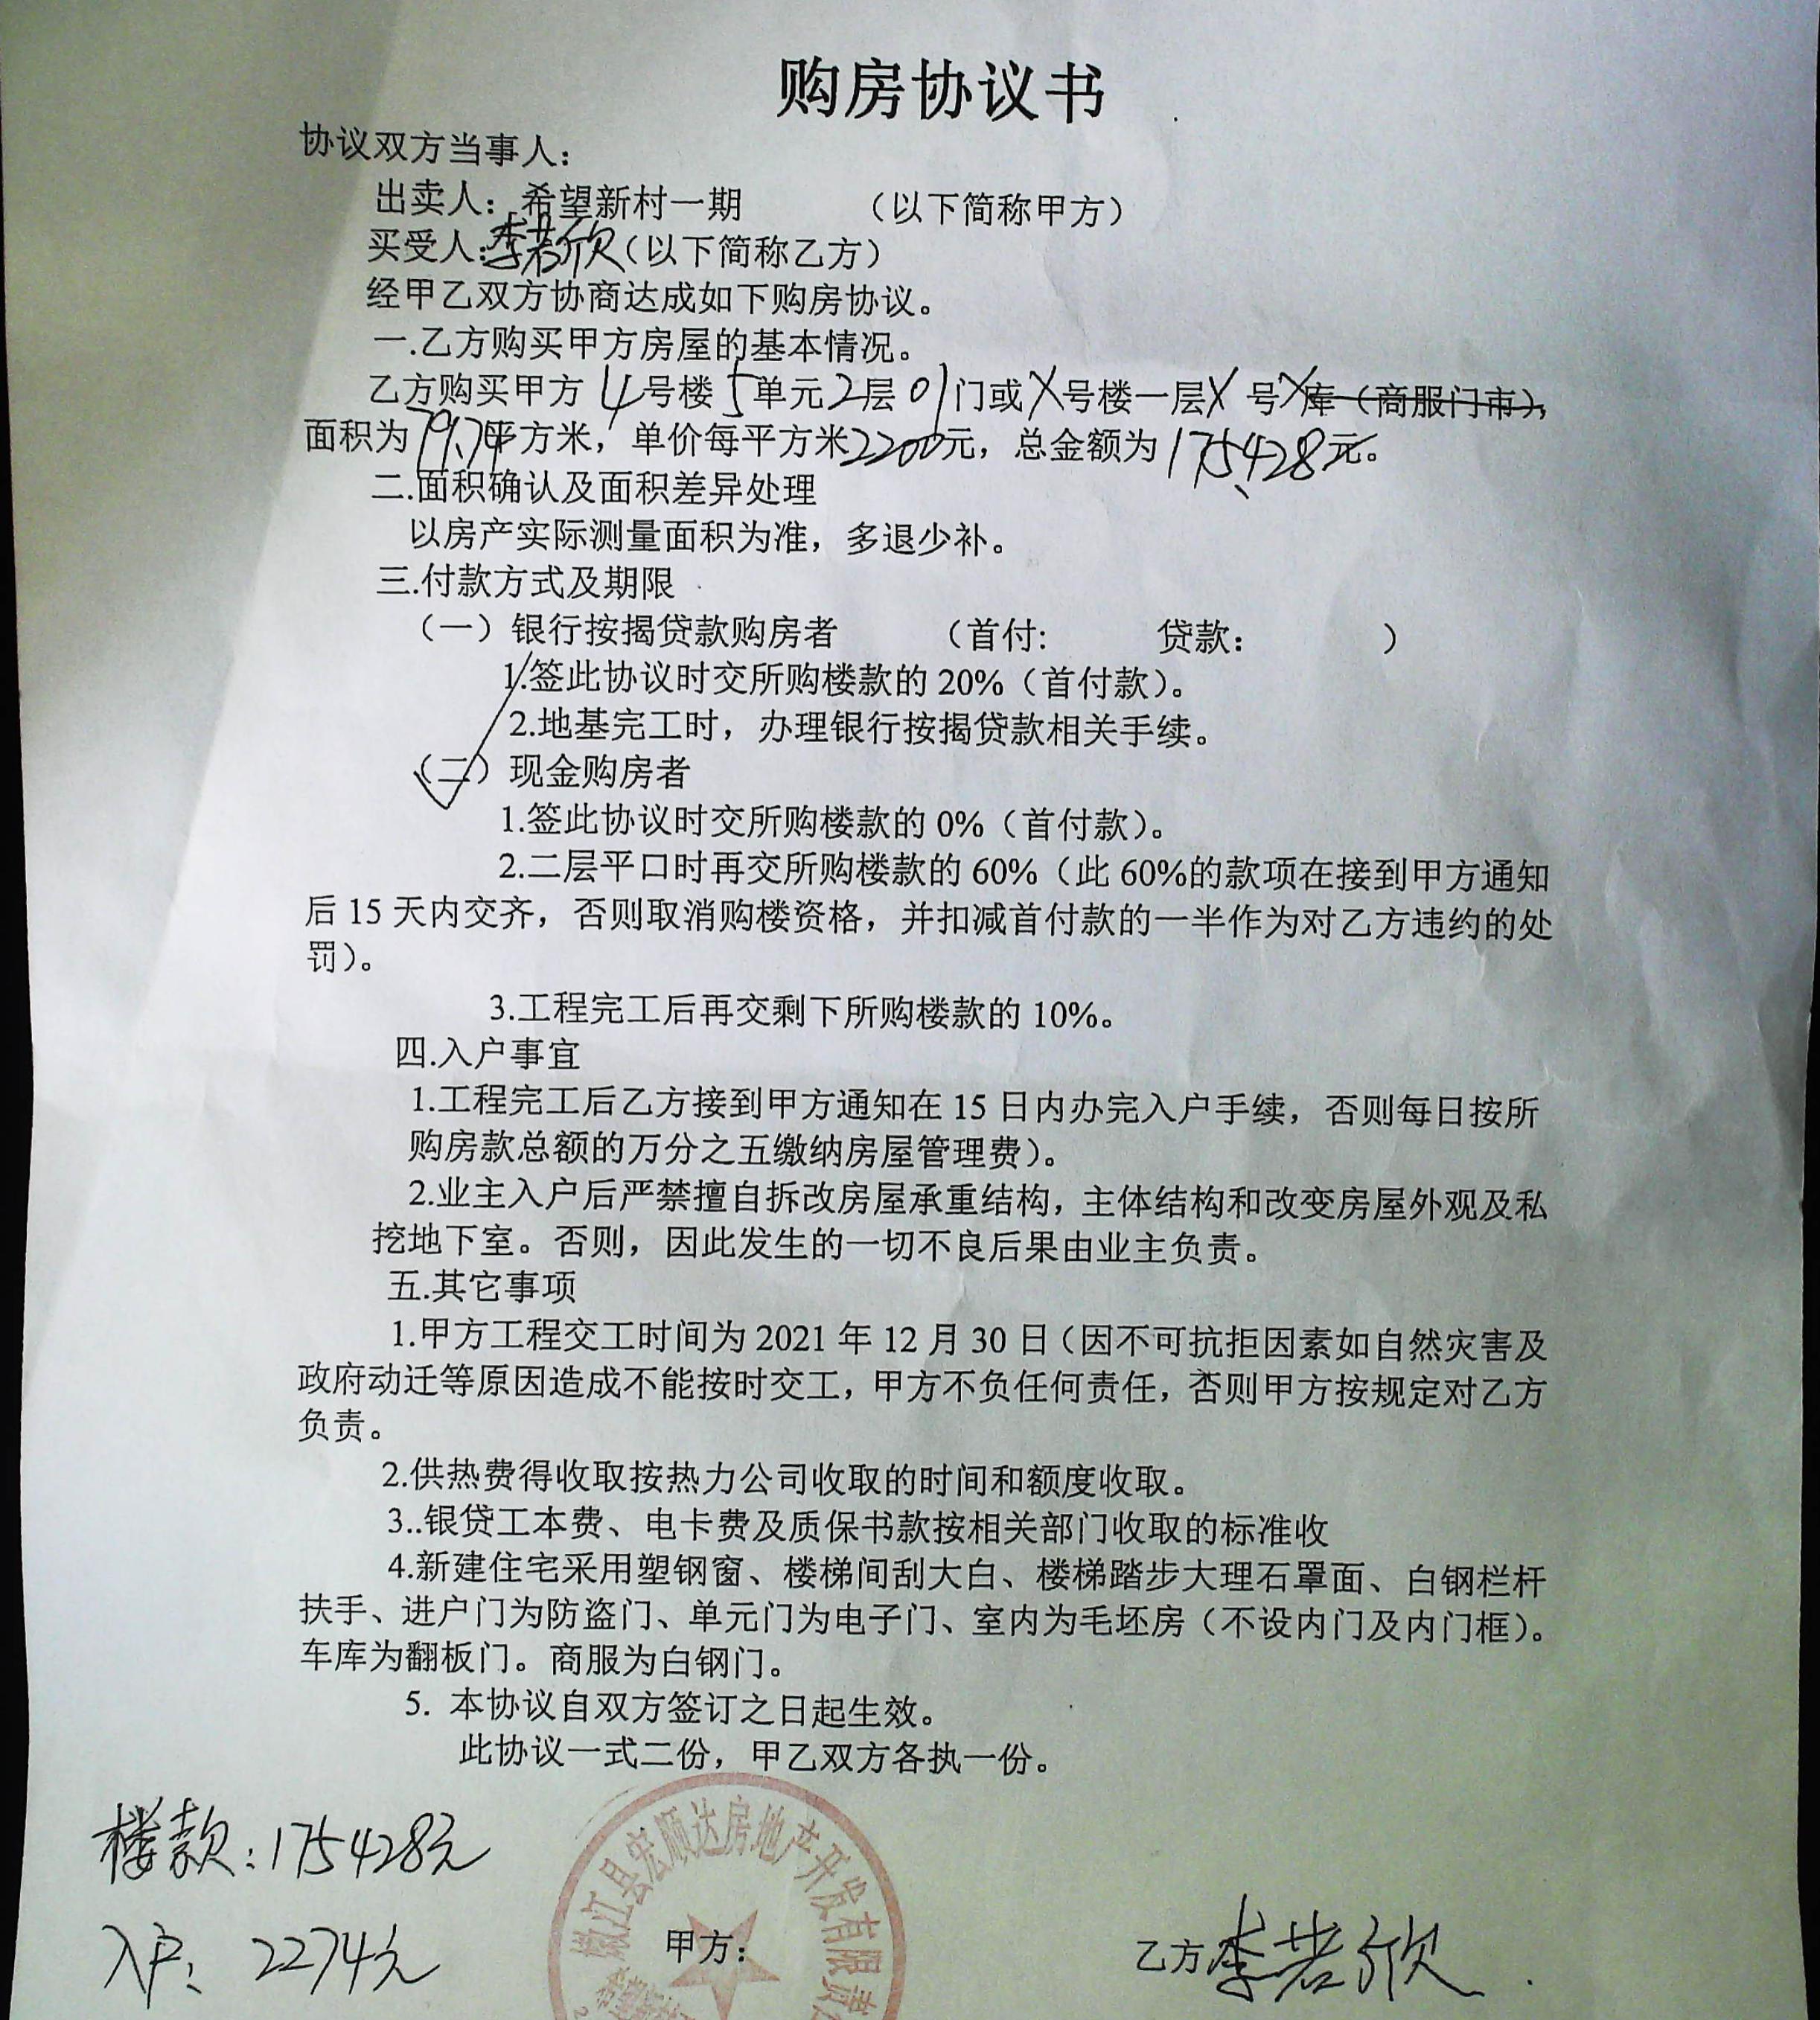 购房协议书
协议双方当事人：
出卖人：希望新村一期 （以下简称甲方）
买受人：李若欣（以下简称乙方）
经甲乙双方协商达成如下购房协议。
一.乙方购买甲方房屋的基本情况。
乙方购买甲方 4号楼 5单元2层 01门或X号楼一层X 号X库（商服门市），
面积为79.74平方米，单价每平方米2200元，总金额为175428元。
二.面积确认及面积差异处理
以房产实际测量面积为准，多退少补。
三.付款方式及期限
（一）银行按揭贷款购房者 （首付: 贷款： ）
1.签此协议时交所购楼款的 20%（首付款）。
2.地基完工时，办理银行按揭贷款相关手续。
（二）现金购房者
1.签此协议时交所购楼款的 0%（首付款）。
2.二层平口时再交所购楼款的 60%（此 60%的款项在接到甲方通知
后 15 天内交齐，否则取消购楼资格，并扣减首付款的一半作为对乙方违约的处
罚）。
3.工程完工后再交剩下所购楼款的 10%。
四.入户事宜
1.工程完工后乙方接到甲方通知在 15 日内办完入户手续，否则每日按所
购房款总额的万分之五缴纳房屋管理费）。
2.业主入户后严禁擅自拆改房屋承重结构，主体结构和改变房屋外观及私
挖地下室。否则，因此发生的一切不良后果由业主负责。
五.其它事项
1.甲方工程交工时间为 2021 年 12 月 30 日（因不可抗拒因素如自然灾害及
政府动迁等原因造成不能按时交工，甲方不负任何责任，否则甲方按规定对乙方
负责。
2.供热费得收取按热力公司收取的时间和额度收取。
3..银贷工本费、电卡费及质保书款按相关部门收取的标准收
4.新建住宅采用塑钢窗、楼梯间刮大白、楼梯踏步大理石罩面、白钢栏杆
扶手、进户门为防盗门、单元门为电子门、室内为毛坯房（不设内门及内门框）。
车库为翻板门。商服为白钢门。
5. 本协议自双方签订之日起生效。
此协议一式二份，甲乙双方各执一份。
楼款：175428元
入户：2274元
嫩江县宏顺达房地产开发有限责
甲方：
乙方李若欣